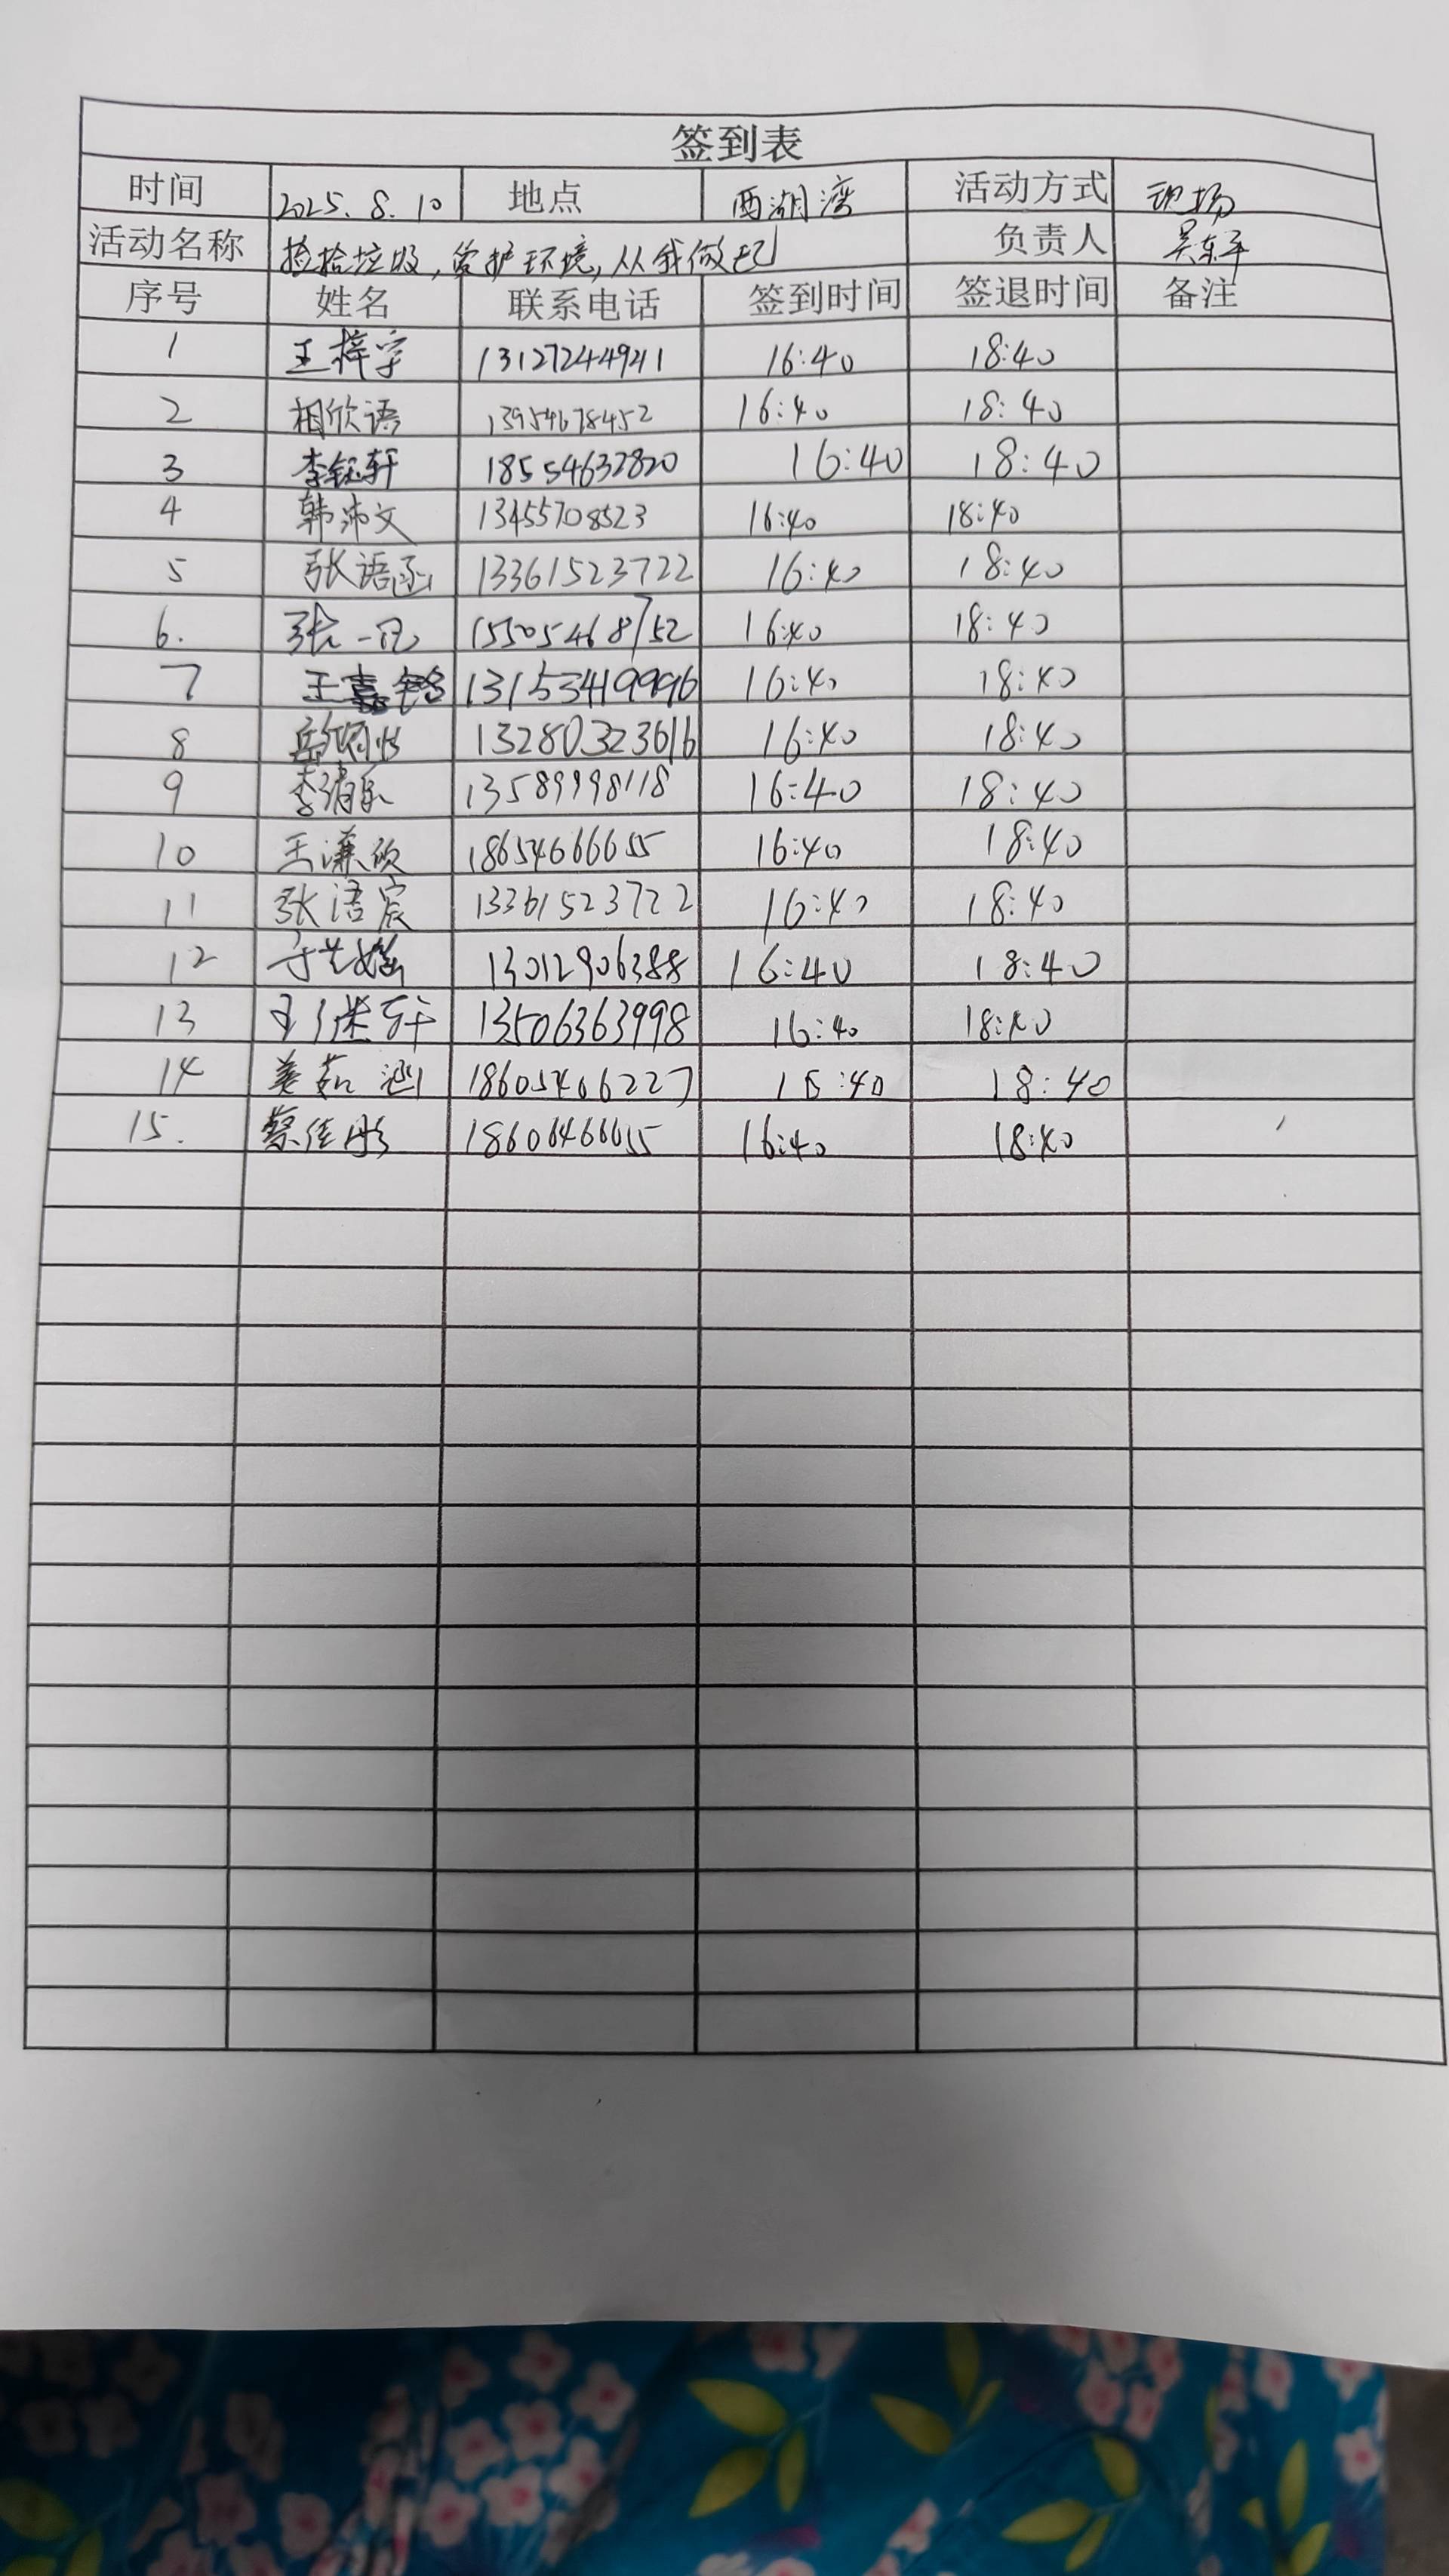 签到表
时间 2025.8.10 地点 西湖湾 活动方式 现场
活动名称 捡拾垃圾,爱护环境,从我做起 负责人 吴东平
序号 姓名 联系电话 签到时间 签退时间 备注
1 王梓宇 13127244941 16:40 18:40
2 相欣语 13954678452 16:40 18:40
3 李钰轩 18554632820 16:40 18:40
4 韩沛文 13455708523 16:40 18:40
5 张语函 13361523722 16:40 18:40
6. 张一凡 15505468752 16:40 18:40
7 王嘉铭 13153419996 16:40 18:40
8 13280323616 16:40 18:40
9 13589998118 16:40 18:40
10 王谦欣 18654666655 16:40 18:40
11 张语宸 13361523722 16:40 18:40
12 13012906388 16:40 18:40
13 13506363998 16:40 18:40
14 姜茹涵 18605466227 16:40 18:40
15. 蔡佳彤 18606466655 16:40 18:40